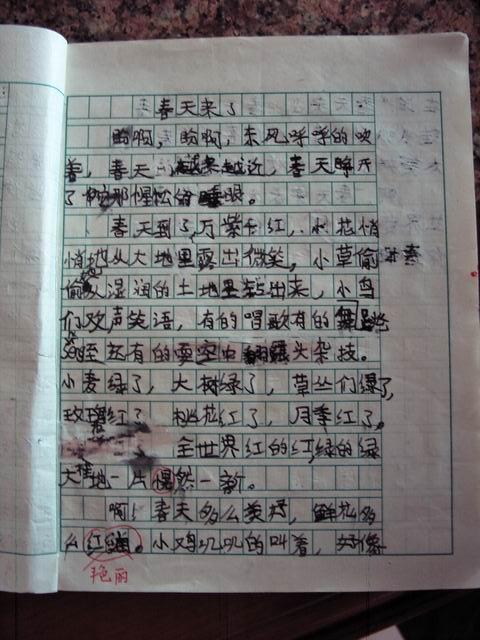 春天来了
盼啊，盼啊，东风呼呼的吹
着，春天越来越近，春天睁开
了惺忪的睡眼。
春天到了，万紫千红，小花悄
悄地从大地里露出微笑，小草偷
偷从湿润的土地里钻出来，小鸟
们欢声笑语，有的唱歌有的舞
有的空中翻头杂技。
小麦绿了，大树绿了，草丛们绿了，
玫瑰红了，桃花红了，月季红了。
全世界红的红，绿的绿
大地一片焕然一新。
啊！春天多么美好，鲜花多
么红。小鸡叽叽的叫着，好像
艳丽